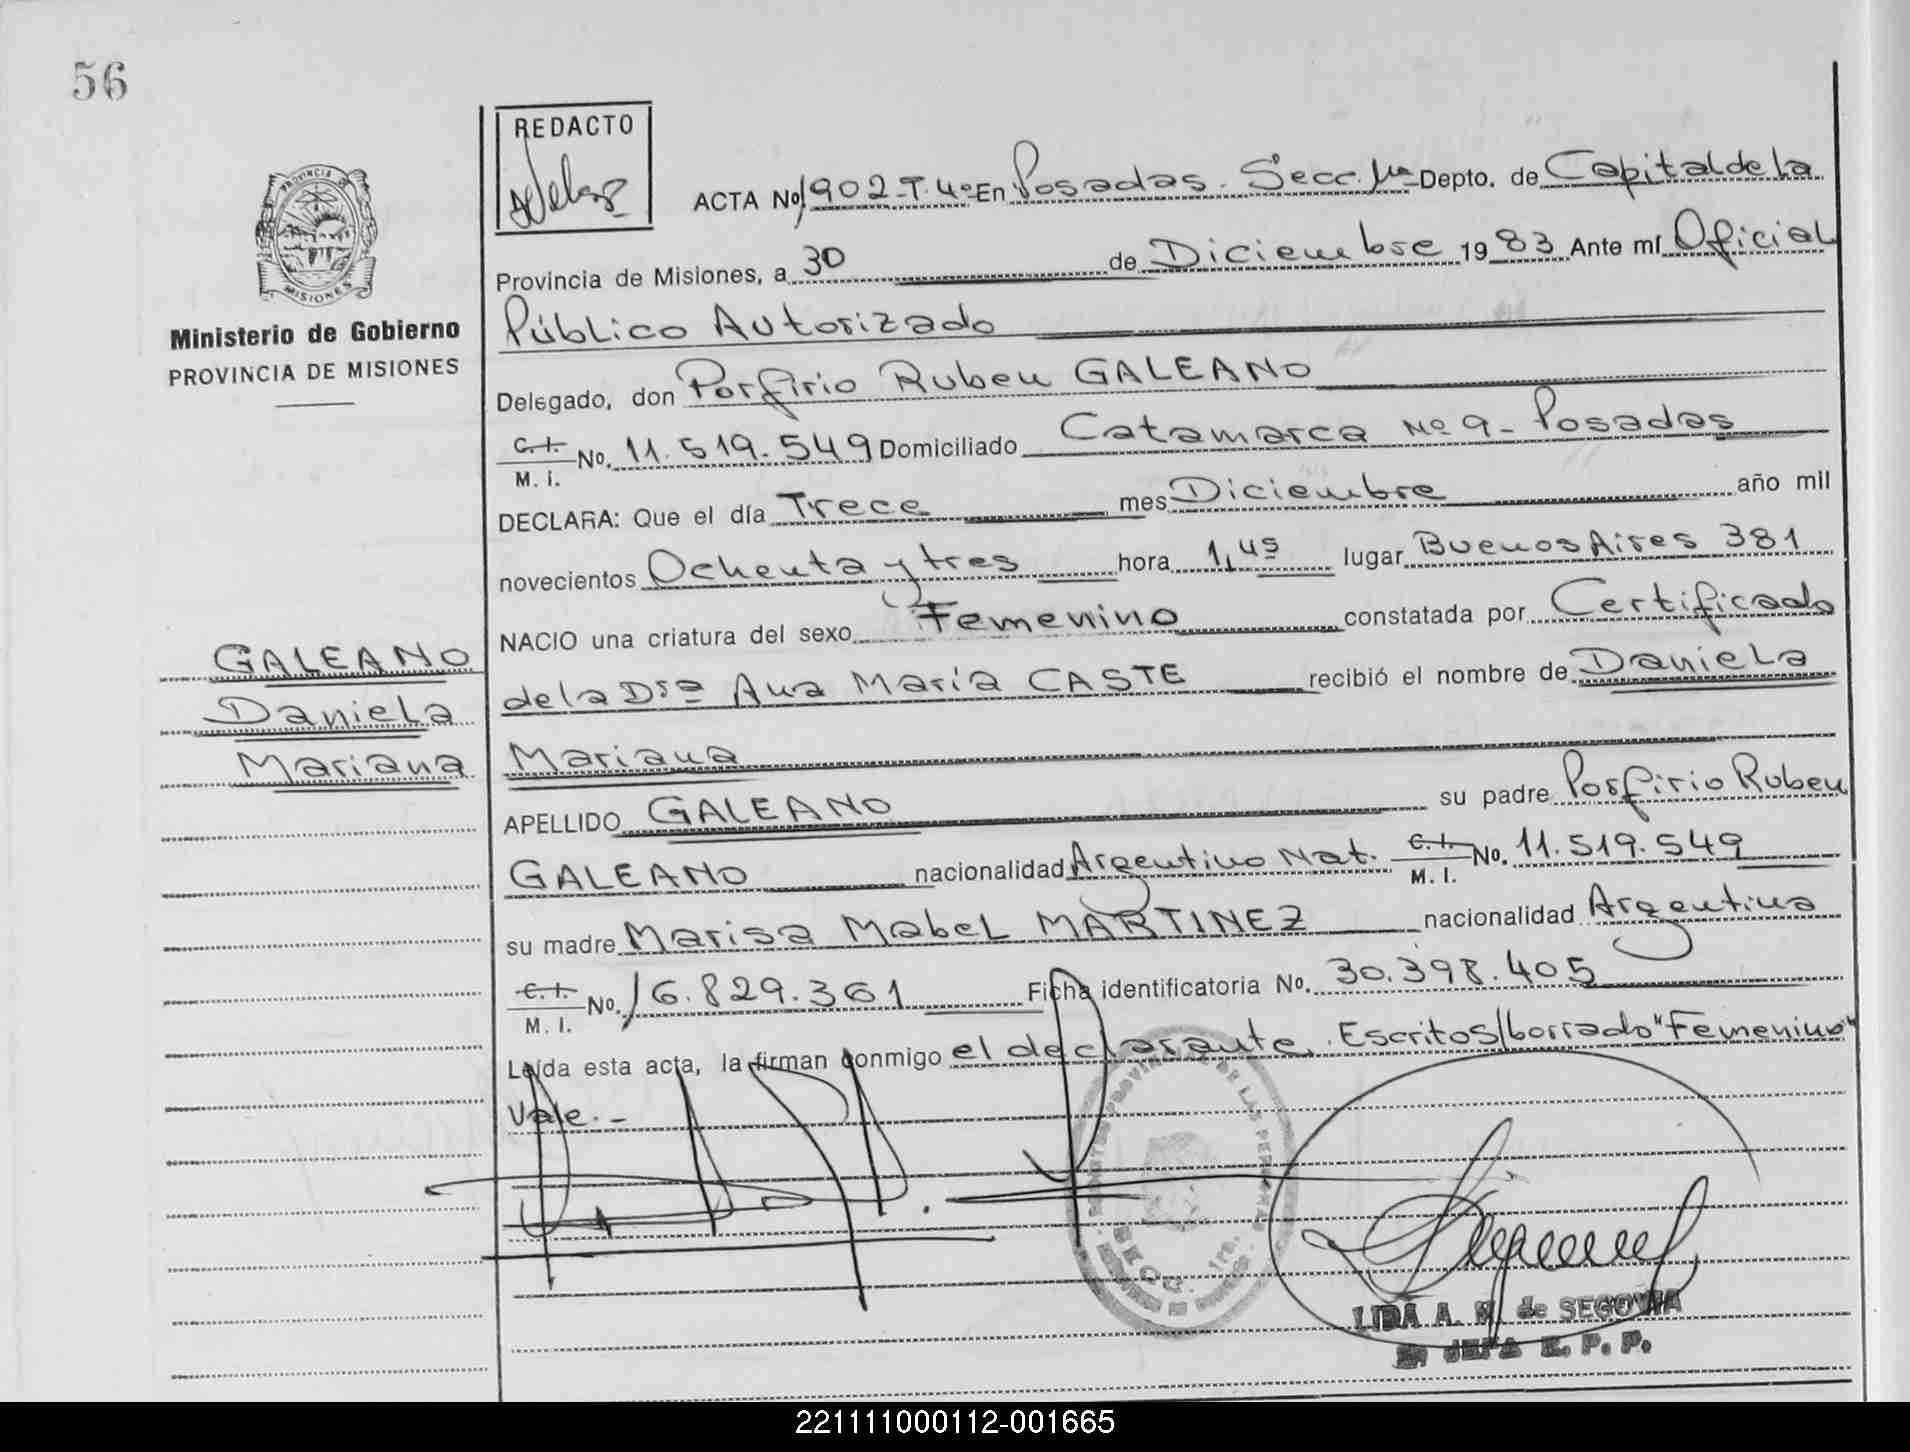 56
REDACTO
ACTA No. 1902-T.4º- En Posadas. Secc. 1ª- Depto. de Capital de la
Provincia de Misiones, a 30 de Diciembre 1983 Ante mí Oficial
Público Autorizado
Delegado, don Porfirio Ruben GALEANO
C.I. M.I. No. 11.519.549 Domiciliado Catamarca Nº 9- Posadas
DECLARA: Que el día Trece mes Diciembre año mil
novecientos Ochenta y tres hora 1,45 lugar Buenos Aires 381
NACIO una criatura del sexo Femenino constatada por Certificado
de la Drª Ana María CASTE recibió el nombre de Daniela
Mariana
APELLIDO GALEANO su padre Porfirio Ruben
GALEANO nacionalidad Argentino Nat. C.I. M.I. No. 11.519.549
su madre Marisa Mabel MARTINEZ nacionalidad Argentina
C.I. M.I. No. 16.829.361 Ficha identificatoria No. 30.398.405
Leída esta acta, la firman conmigo el declarante. Escritos/borrado "Femenino"
Vale.-
PROVINCIA DE MISIONES
Ministerio de Gobierno
PROVINCIA DE MISIONES
GALEANO
Daniela
Mariana
LIDA A. M. de SEGOVIA
JEFA E. P. P.
221111000112-001665